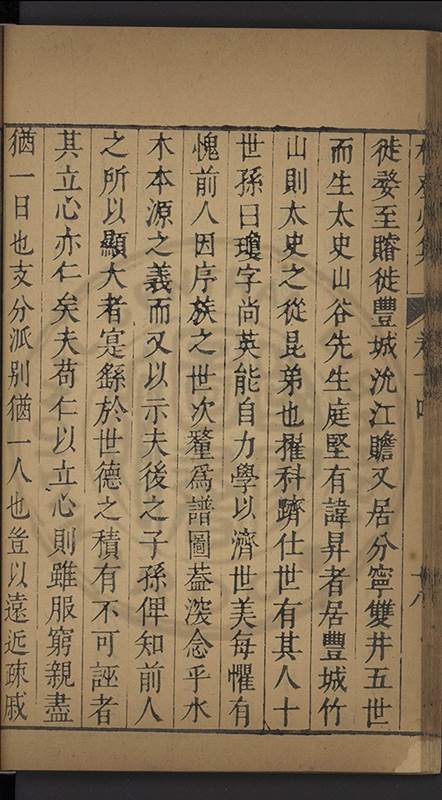 卷十四
十八
徙婺至贍徙豐城沇江贍又居分寧雙井五世
而生太史山谷先生庭堅有諱昇者居豐城竹
山則太史之從昆弟也擢科躋仕世有其人十
世孫曰瓊字尚英能自力學以濟世美每懼有
愧前人因序族之世次釐爲譜圖葢深念乎水
木本源之義而又以示夫後之子孫俾知前人
之所以顯大者寔繇於世德之積有不可誣者
其立心亦仁矣夫苟仁以立心則雖服窮親盡
猶一日也支分派别猶一人也豈以遠近疎戚